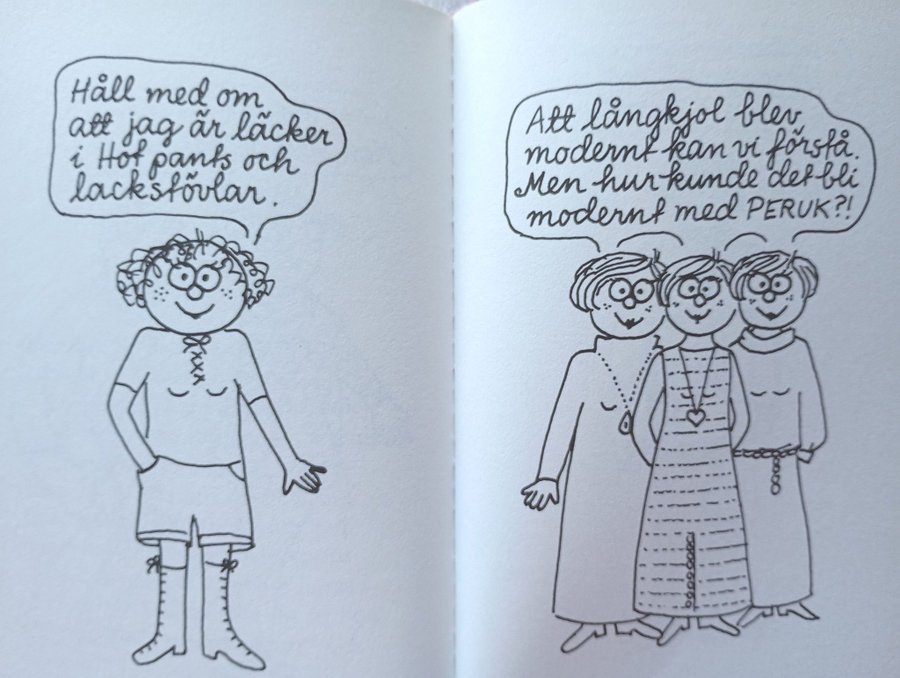 Håll med om
att jag är läcker
i Hot pants och
lackstövlar.
Att långkjol blev
modernt kan vi förstå.
Men hur kunde det bli
modernt med PERUK?!